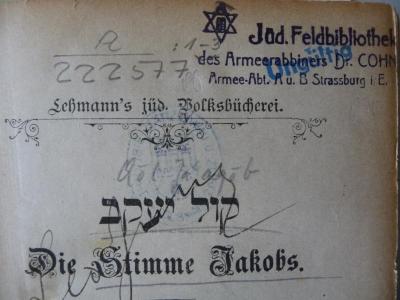 Jüd. Feldbibliothek
des Armeerabbiners Dr. COHN
Armee-Abt. A u. B Strassburg i. E.
Ungültig
R : 1-3
222577
Lehmann's jüd. Volksbücherei.
Qol Jaʿaqob
קול יעקב
Die Stimme Jakobs.